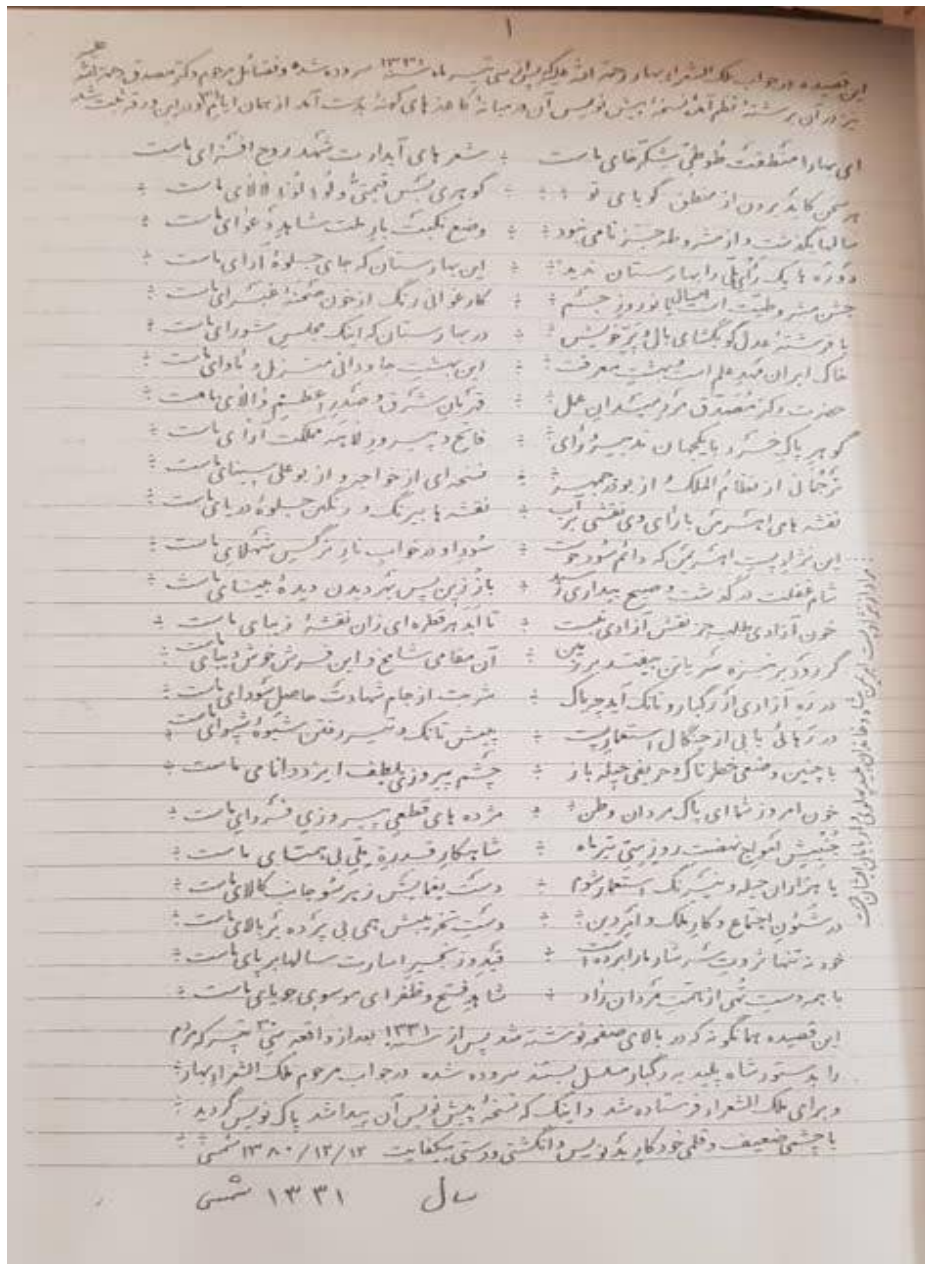 ۱
این قصیده در جواب ملک الشعراء بهار رحمة الله علیه پس از سی تیر ماه ۱۳۳۱ سروده شده و فضائل مرحوم دکتر مصدق رحمة الله علیه
نیز در آن برشتهٔ نظم آمده نسخهٔ پیش نویس آن در میانهٔ کاغذهای کهنه بدست آمد از همان ایام و در این ورقه ثبت شد
ای بهارا منطقت طوطی شکرخای ماست ÷ شعرهای آبدارت شهد روح افزای ماست
هر سخن کاید برون از منطق گویای تو ÷ گوهری بس قیمتی و لؤلؤ لالای ماست
سالها بگذشت و از مشروطه جز نامی نبود ÷ وضع نکبت بار ملت شاهد دعوای ماست
دوره ها یک رأی ملی را بهارستان ندید ÷ این بهارستان که جای جلوه آرای ماست
جشن مشروطیت است امسال با نوروز جشم ÷ کارغوانی رنگ از خون
با فرشتهٔ عدل گو بگشای بال و پر خویش ÷ در بهارستان که اینک مجلس شورای ماست
خاک ایران مهد علم است و بهشت معرفت ÷ این بهشت جاودانی منزل و مأوای ماست
حضرت دکتر مصدق مرد میدان عمل ÷ قهرمان شرق و صدر اعظم والای ماست
گوهر پاک خرد با یکجهان تدبیر و رای ÷ فاتح و پیروز لاهه مملکت آرای ماست
ترجمانی از نظام الملک و از بوذرجمهر ÷ نسخه ای از خواجه و از بوعلی سینای ماست
نقشه های اهرمن با رای وی نقشی بر آب ÷ نقشه ها بیرنگ و رنگین جلوهٔ دریای ماست
این نژاد پست اهریمن که دائم سود جوست ÷ سود او در خواب ناز نرگس شهلای ماست
شام غفلت درگذشت و صبح بیداری رسید ÷ باز زین پس بهر دیدن دیدهٔ بینای ماست
خون آزادی طلب جز نقش آزادی نبست ÷ تا ابد هر قطره ای زان نقشهٔ زیبای ماست
گر رود بر نیزه سر یا تن بیفتد بر زمین ÷ آن مقامی شامخ و این فرش خوش دیبای ماست
در ره آزادی از رگبار و تانک آید چه باک ÷ شربت از جام شهادت حاصل سودای ماست
در رهائی یابی از چنگال استعمار پست ÷ پیش تانک و تیر رفتن شیوهٔ شیوای ماست
با چنین وضعی خطرناک و حریفی حیله باز ÷ چشم پیروزی بلطف ایزد دانای ماست
خون امروز شما ای پاک مردان وطن ÷ مژده های قطعی پیروزی فردای ماست
جنبش امواج نهضت روز سی تیر ماه ÷ شاهکار قدرة ملی بی همتای ماست
با هزاران حیله و نیرنگ استعمار شوم ÷ دست یغمایش ز هر سو جانب کالای ماست
در شئون اجتماع و کار ملک و امر دین ÷ دست تخریبش همی بی پرده بر بالای ماست
خود نه تنها ثروت سرشار ما را برده است ÷ قید و زنجیر اسارت سالها بر پای ماست
با همه دست تهی از همت مردان راد ÷ شاهد فتح و ظفر ای موسوی جویای ماست
این قصیده همانگونه که در بالای صفحه نوشته شد پس از سنهٔ ۱۳۳۱ بعد از واقعهٔ سی تیر که مردم
را بدستور شاه پلید به رگبار مسلسل بستند سروده شده در جواب مرحوم ملک الشعراء بهار
و برای ملک الشعراء فرستاده شد و اینک که نسخهٔ پیش نویس آن پیدا شد پاک نویس گردید
با چشمی ضعیف و قلمی خودکار بد نویس و انگشتی و دستی بیکفایت ۱۳۸۰/۱۲/۱۲ شمسی
سال ۱۳۳۱ شمسی